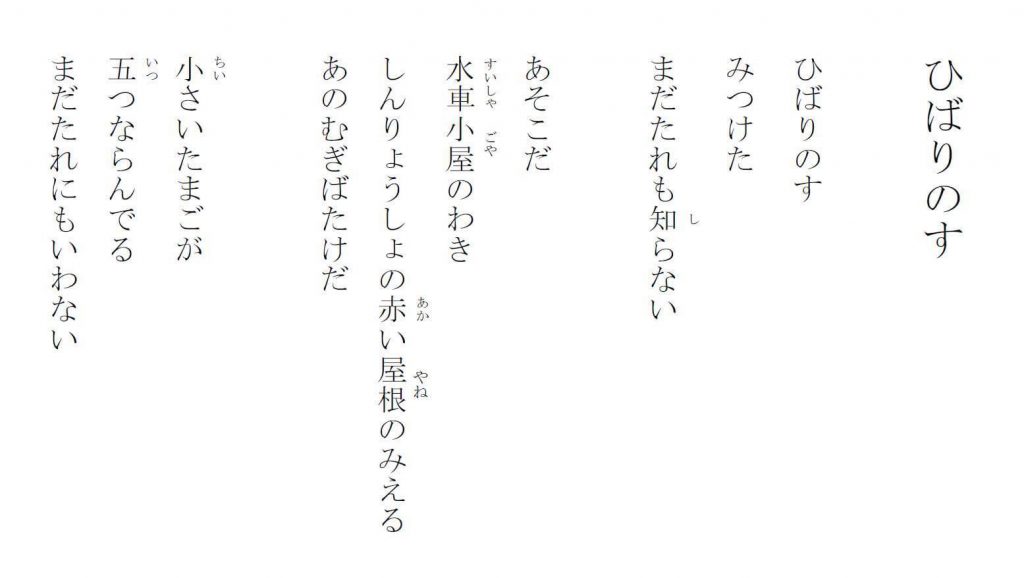 ひばりのす
ひばりのす
みつけた
まだたれも知らない
あそこだ
水車小屋のわき
しんりょうしょの赤い屋根のみえる
あのむぎばたけだ
小さいたまごが
五つならんでる
まだたれにもいわない